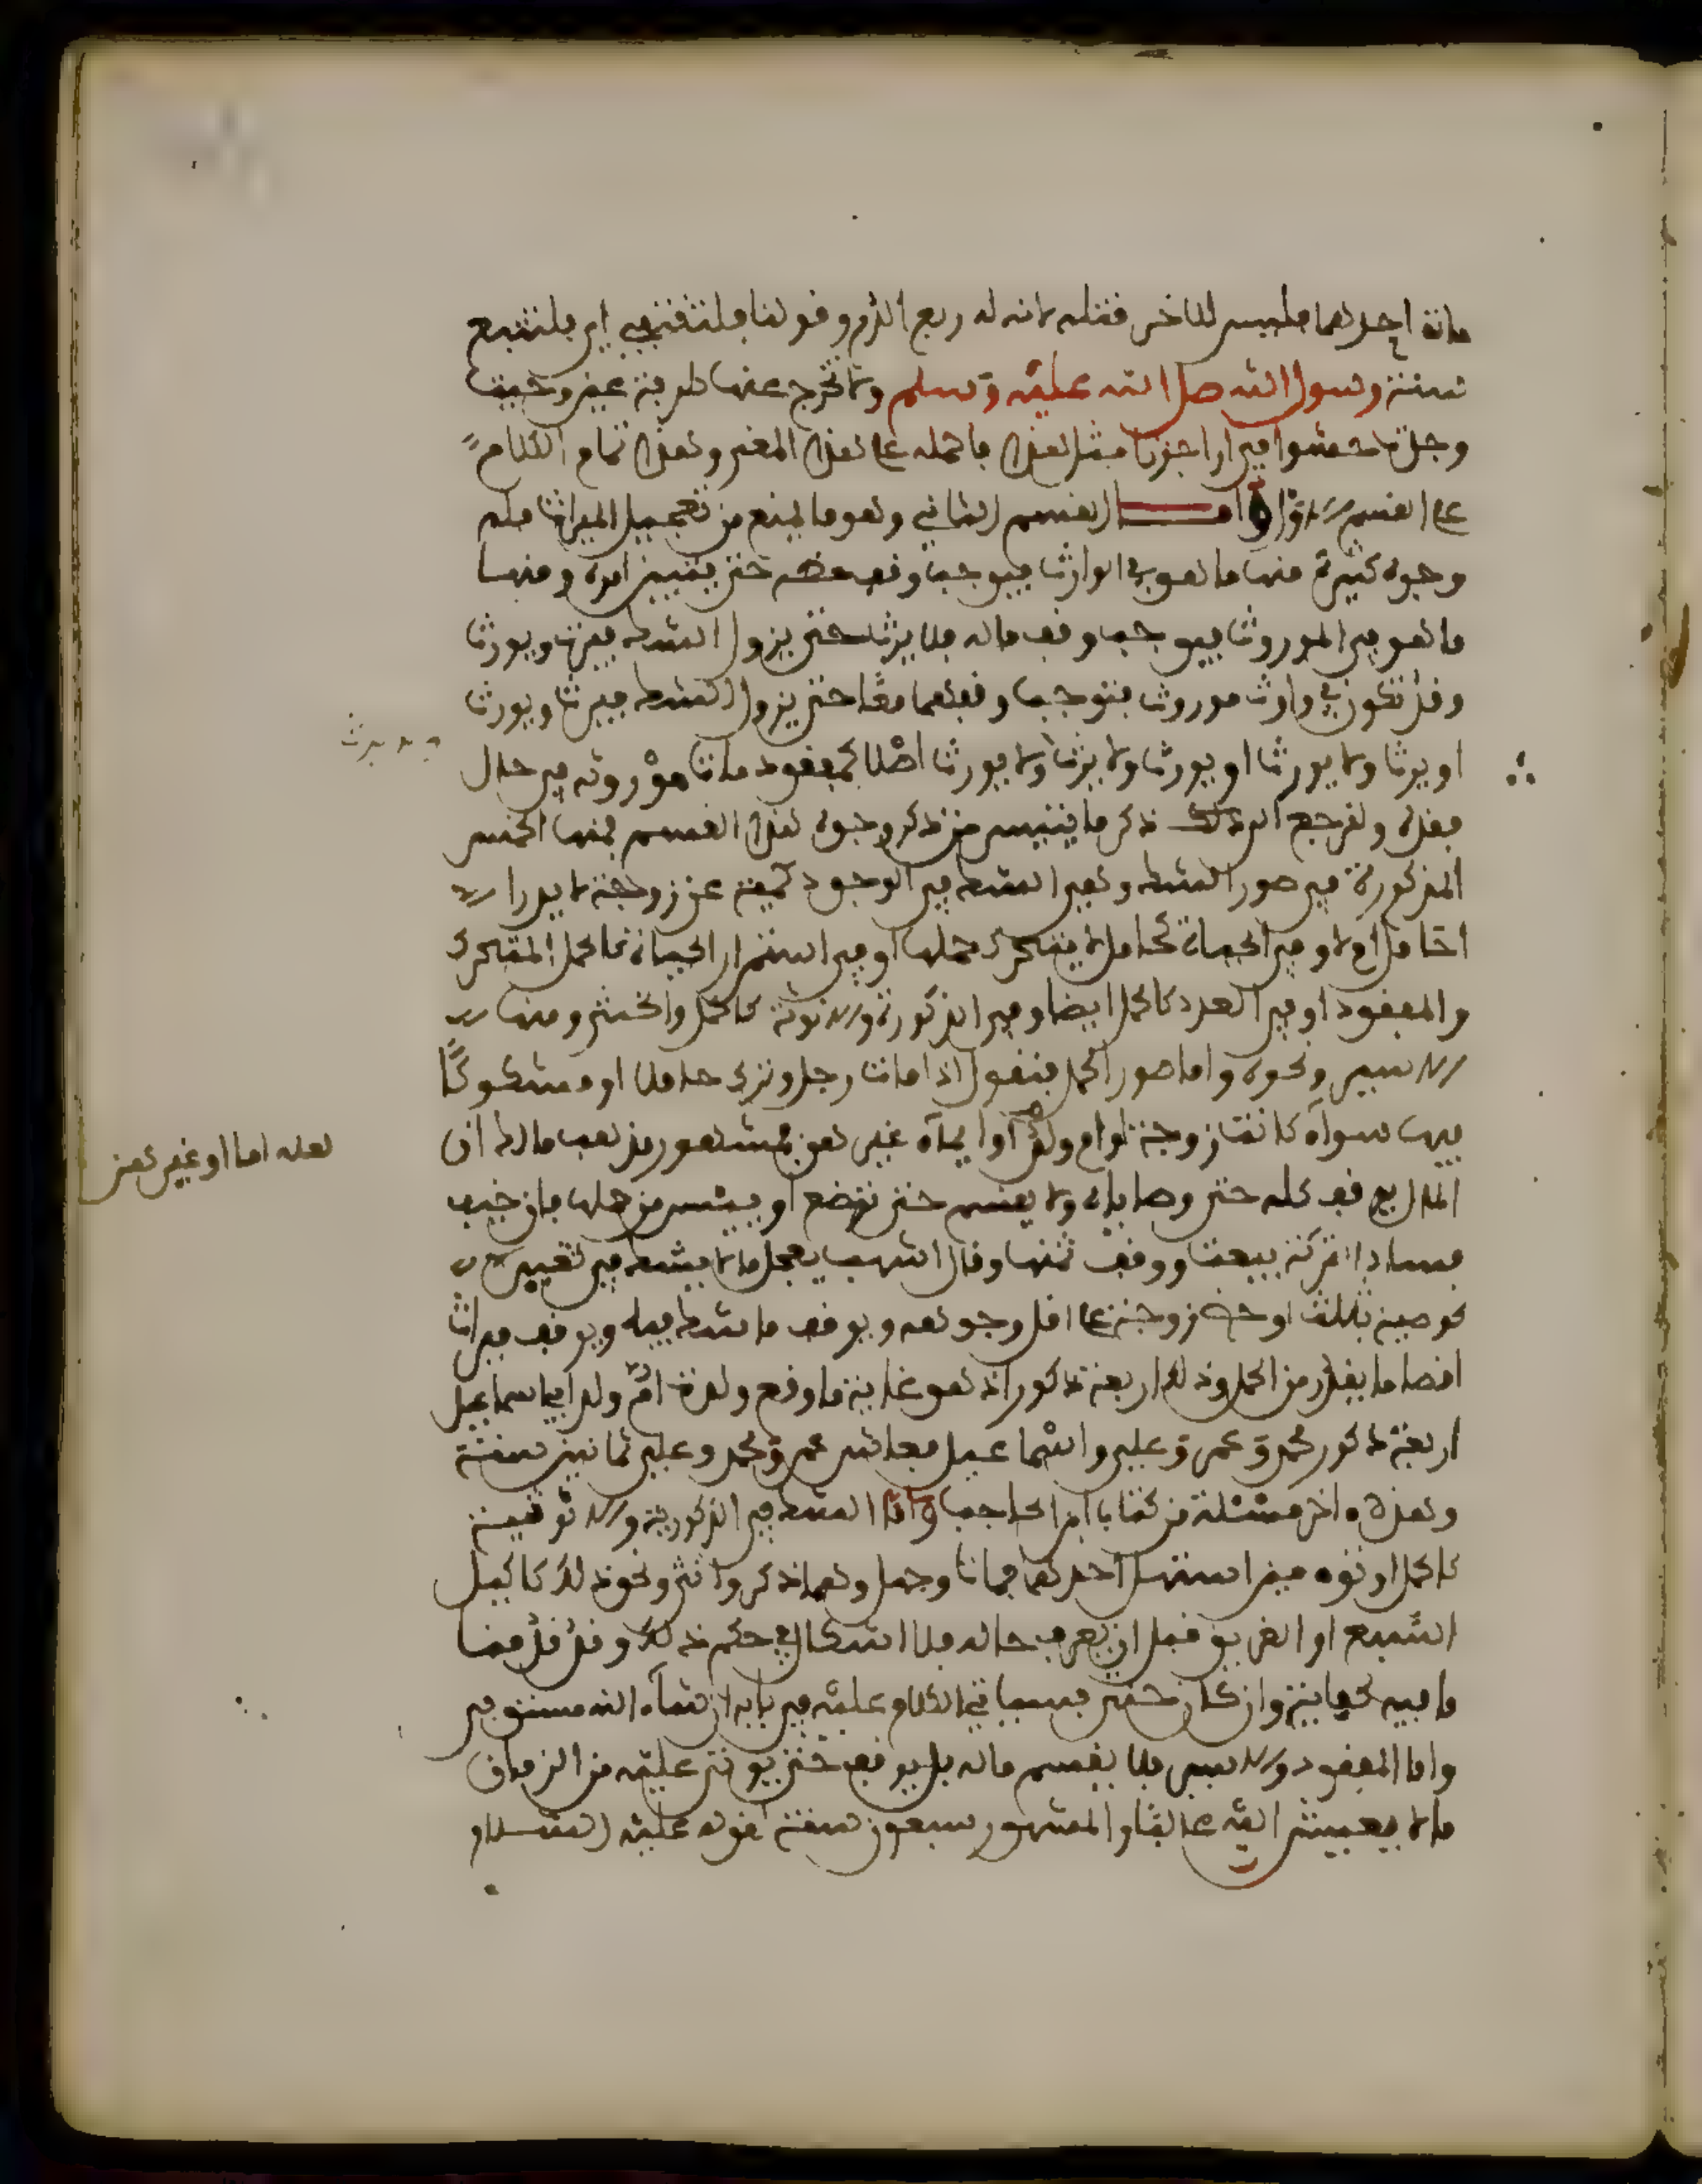 مات احدهما فليس للاخر قتله لانه له ربع الدم وقولنا فلنقتفي اي فلنتبع
سنة رسول الله صلى الله عليه وسلم ولا نخرج عنها طريقة عين وحيث
وجدت حشوا في اراجزنا مثل هذا فاحمله على هذا المعنى وهذا تمام الكلام
على القسم الاول واما القسم الثاني وهو ما يمنع من تعجيل الميراث فله
وجوه كثيرة منها ما هو في الوارث فيوجب وقف حظه حتى يتبين امره ومنها
ما هو في الموروث فيوجب وقف ماله فلا يرث حتى يزول الشك فيرث ويورث
وقد تكون في وارث موروث فتوجب وقفهما معا حتى يزول الشك فيرث ويورث
او يرث ولا يورث او يورث ولا يرث ولا يورث اصلا كمفقود مات موروثه في حال
فقده ولنرجع الى ذلك ذكر ما تيسر من ذكر وجوه هذا القسم فمنها الخمس
المذكورة في صور الشك وهي الشك في الوجود كميت عن زوجة لا يدرا
احامل ام لا وفي الحياة كحامل لا يتحرك حملها او في استمرار الحياة كالحمل المتحرك
والمفقود او في العدد كالحمل ايضا وفي الذكورة والانوثة كالحمل والخنثى ومنها
الاسير ونحوه واما صور الحمل فنقول اذا مات رجل وترك حاملا او مشكوكا
فيها سواء كانت زوجة او ام ولد او اماء غير هن فمشهور مذهب مالك ان
المال يوقف كله حتى وصاياه ولا يقسم حتى تضع او ييئس من حملها فان خيف
فساد التركة بيعت ووقف ثمنها وقال اشهب يعجل ما لا يشك في تغييره
كوصية بثلث او حظ زوجة على اقل وجوهه ويوقف ما شك فيه ويوقف ميراث
اقصا ما يقدر من الحمل وذلك اربعة ذكور اذ هو غاية ما وقع ولدت ام ولد ابي اسماعيل
اربعة ذكور محمد وعمر وعلي واسماعيل فعاش عمر ومحمد وعلي ثمانين سنة
وهذه ءاخر مسئلة من كتاب ابن الحاجب واما الشك في الذكورية والانوثية
كالحمل او توءمين استهل احدهما فماتا وجهل وهما ذكر وانثى ونحو ذلك كاكيل
السبع او الغريق قبل ان يعرف حاله فلا اشكال في حكم ذلك وقد قدمنا
ما فيه كفاية وان كان خنثى فسياتي الكلام عليه في بابه ان شاء الله مستوفى
واما المفقود والاسير فلا يقسم ماله بل يوقف حتى يوتى عليه من الزمان
ما لا يعيش اليه غالبا والمشهور سبعون سنة لقوله عليه السلام
يرث
لعله اما او غير هن